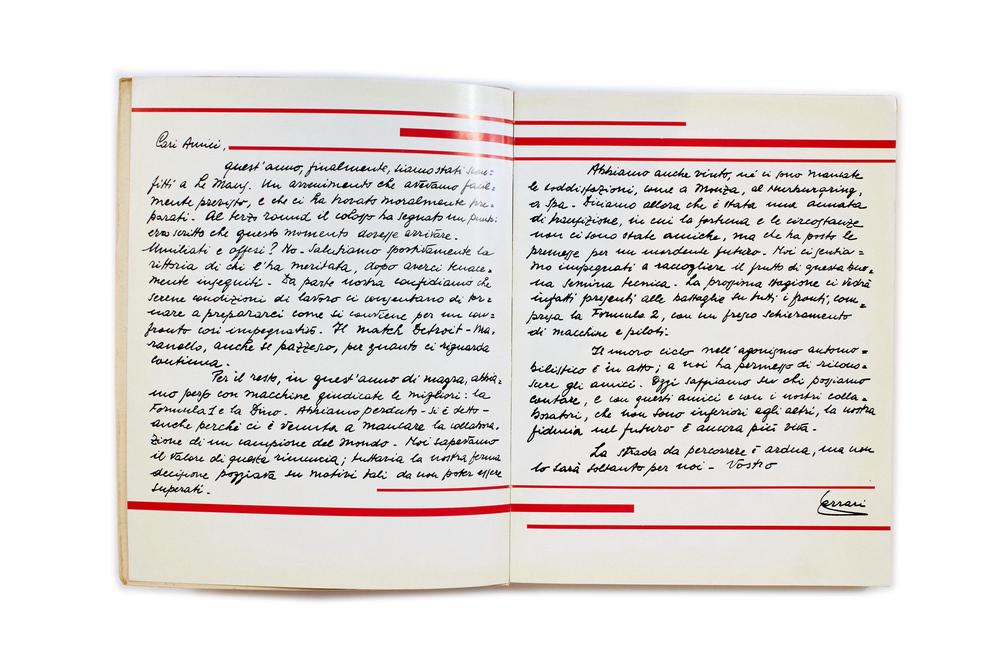 Cari Amici,
quest'anno, finalmente, siamo stati scon=
fitti a Le Mans. Un avvenimento che avevamo facil=
mente previsto, e che ci ha trovato moralmente pre=
parati. Al terzo round il colosso ha segnato un punto:
era scritto che questo momento dovesse arrivare.
Umiliati e offesi? No. Salutiamo sportivamente la
vittoria di chi l'ha meritata, dopo averci tenace=
mente inseguiti. Da parte nostra confidiamo che
serene condizioni di lavoro ci consentano di tor=
nare a prepararci come si conviene per un con=
fronto così impegnativo. Il match Detroit-Ma=
ranello, anche se pazzesco, per quanto ci riguarda
continua.
Per il resto, in quest'anno di magra, abbia=
mo perso con macchine giudicate le migliori: la
Formula 1 e la Dino. Abbiamo perduto - si è detto -
anche perché ci è venuta a mancare la collabora=
zione di un campione del mondo. Noi sapevamo
il valore di questa rinuncia; tuttavia la nostra ferma
decisione poggiava su motivi tali da non poter essere
superati.
Abbiamo anche vinto, né ci sono mancate
le soddisfazioni, come a Monza, al Nürburgring,
a Spa. Diciamo allora che è stata una annata
di transizione, in cui la fortuna e le circostanze
non ci sono state amiche, ma che ha posto le
premesse per un mordente futuro. Noi ci sentia=
mo impegnati a raccogliere il frutto di questa buo=
na semina tecnica. La prossima stagione ci vedrà
infatti presenti alle battaglie su tutti i fronti, com=
presa la Formula 2, con un fresco schieramento
di macchine e piloti.
Il nuovo ciclo nell'agonismo automo=
bilistico è in atto; a noi ha permesso di misu=
rare gli amici. Oggi sappiamo su chi possiamo
contare, e con questi amici e con i nostri colla=
boratori, che non sono inferiori agli altri, la nostra
fiducia nel futuro è ancora più viva.
La strada da percorrere è ardua, ma non
lo sarà soltanto per noi - Vostro
Ferrari